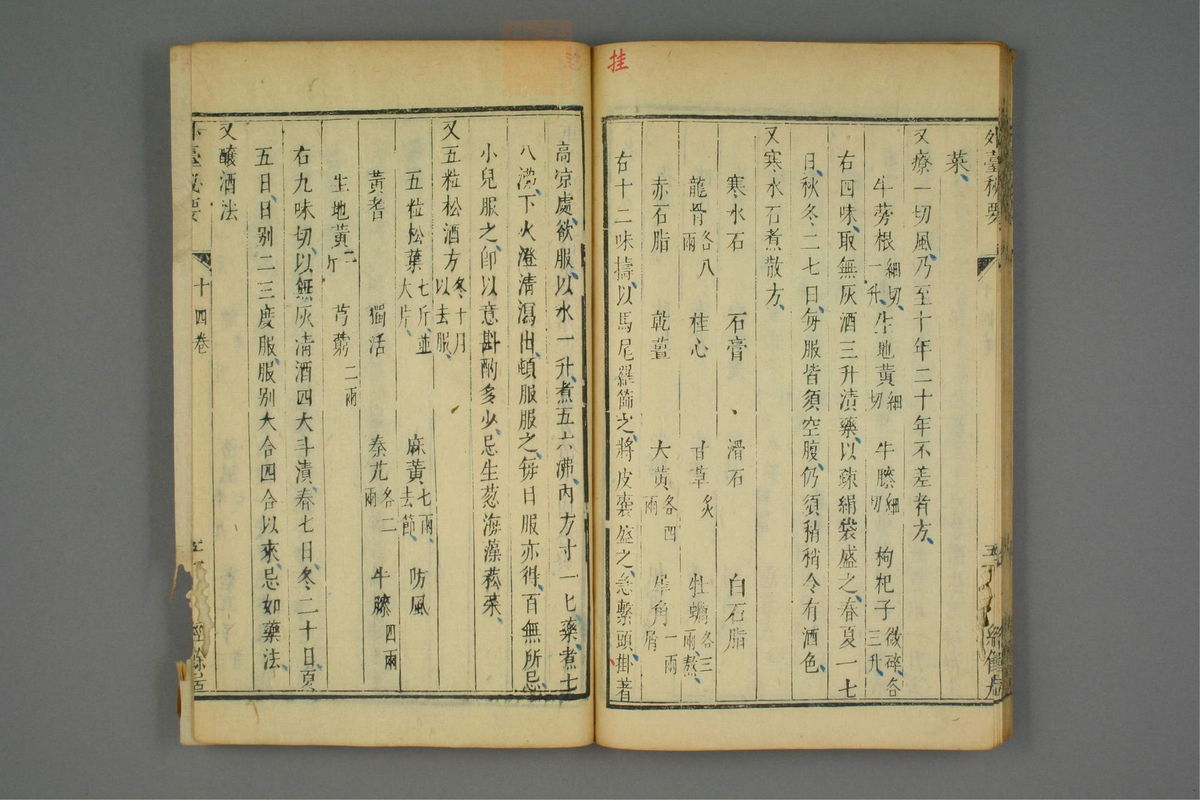 挂
外臺秘要
菜
又療一切風乃至十年二十年不差者方
牛蒡根一升細切 生地黃細切 牛膝細切 枸杞子微碎各三升
右四味取無灰酒三升漬藥以疎絹袋盛之春夏一七
日秋冬二七日每服皆須空腹仍須稍稍令有酒色
又寒水石煮散方
寒水石 石膏 滑石 白石脂
龍骨各八兩 桂心 甘草炙 牡蠣各三兩熬
赤石脂 乾薑 大黃各四兩 犀角一兩屑
右十二味擣以馬尾羅篩之將皮囊盛之急繫頭掛著
高凉處欲服以水一升煮五六沸內方寸一匕藥煮七
八沸下火澄清瀉出頓服服之每日服亦得百無所忌
小兒服之卽以意斟酌多少忌生葱海藻菘菜
又五粒松酒方冬十月以去服
五粒松葉七斤並大片 麻黃七兩去節 防風
黃耆 獨活 秦艽各二兩 牛膝四兩
生地黃二斤 芎藭二兩
右九味切以無灰清酒四大斗漬春七日冬二十日夏
五日日別二三度服服別大合四合以來忌如藥法
又釀酒法
外臺秘要 十四卷 經餘居